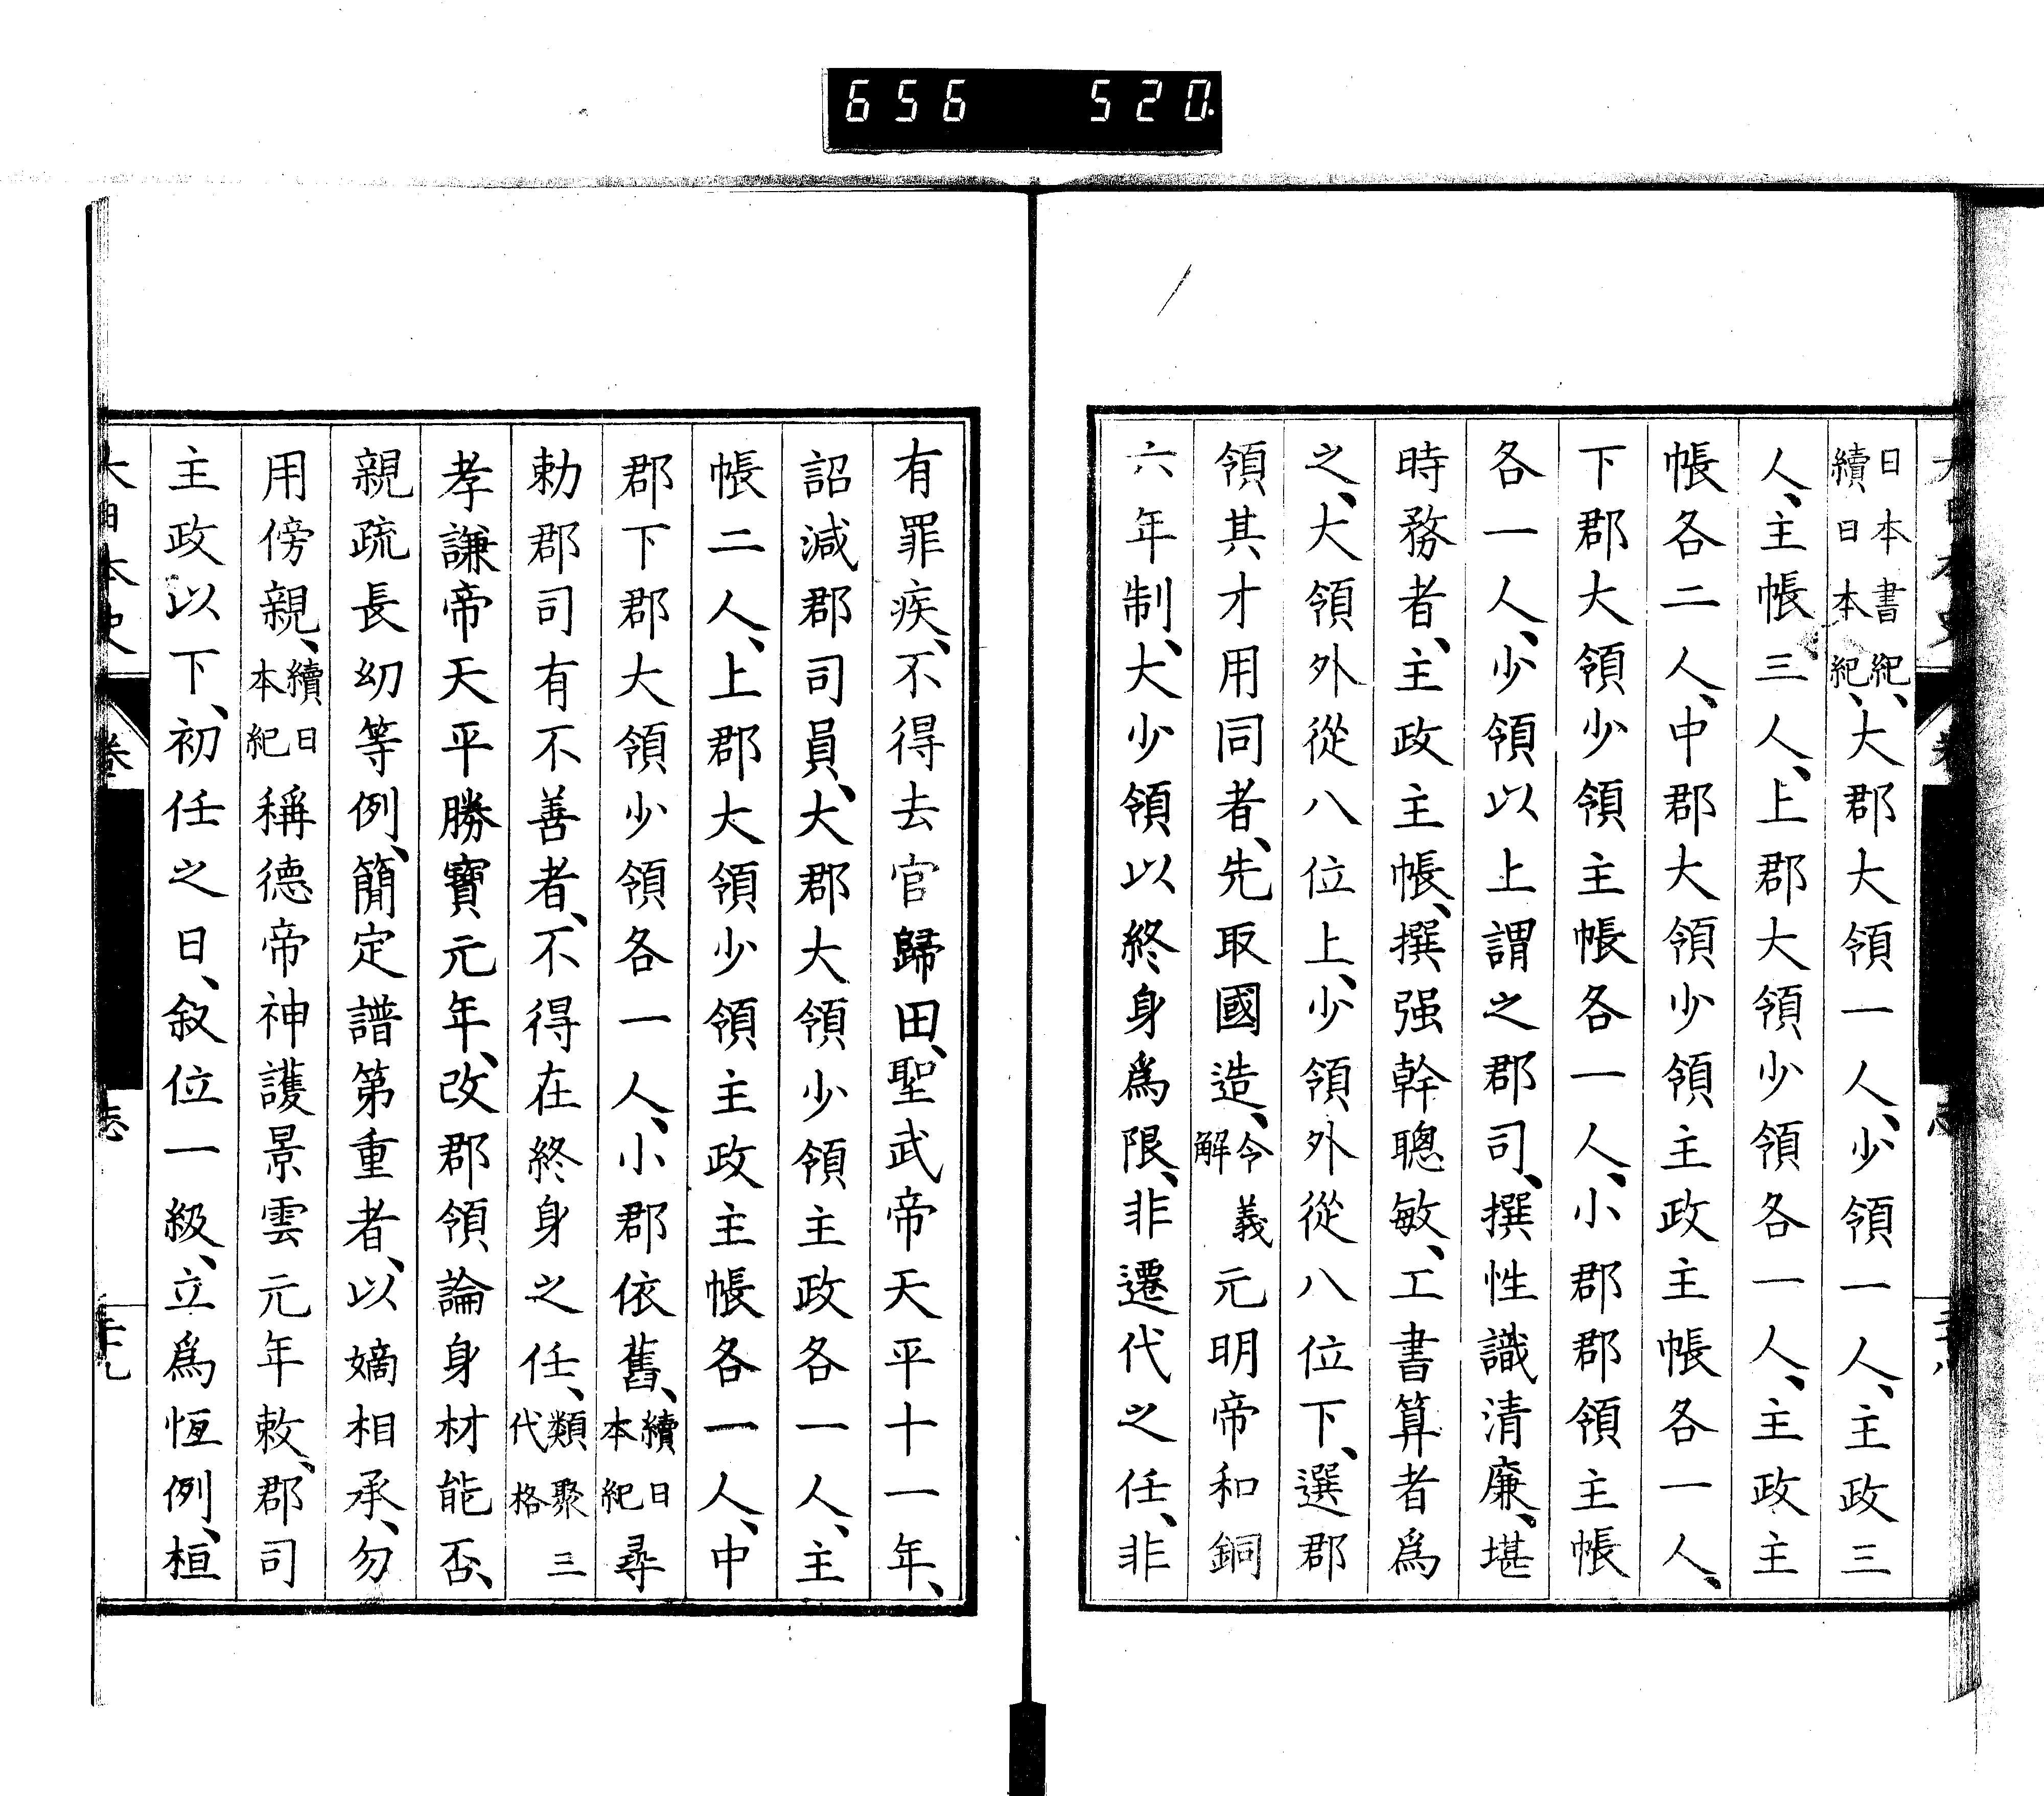 656 520.
日本書紀、續日本紀、大郡大領一人、少領一人、主政三
人、主帳三人、上郡大領少領各一人、主政主
帳各二人、中郡大領少領主政主帳各一人、
下郡大領少領主帳各一人、小郡郡領主帳
各一人、少領以上謂之郡司、撰性識清廉、堪
時務者、主政主帳、撰强幹聰敏、工書算者爲
之、大領外從八位上、少領外從八位下、選郡
領其才用同者、先取國造、令義解元明帝和銅
六年制、大少領以終身爲限、非遷代之任、非
有罪疾、不得去官歸田、聖武帝天平十一年、
詔減郡司員、大郡大領少領主政各一人、主
帳二人、上郡大領少領主政主帳各一人、中
郡下郡大領少領各一人、小郡依舊、續日本紀尋
勅郡司有不善者、不得在終身之任、類聚三代格
孝謙帝天平勝寶元年、改郡領論身材能否、
親疏長幼等例、簡定譜第重者、以嫡相承、勿
用傍親、續日本紀稱德帝神護景雲元年敕、郡司
主政以下、初任之日、敘位一級、立爲恆例、桓
大日本史 卷 志